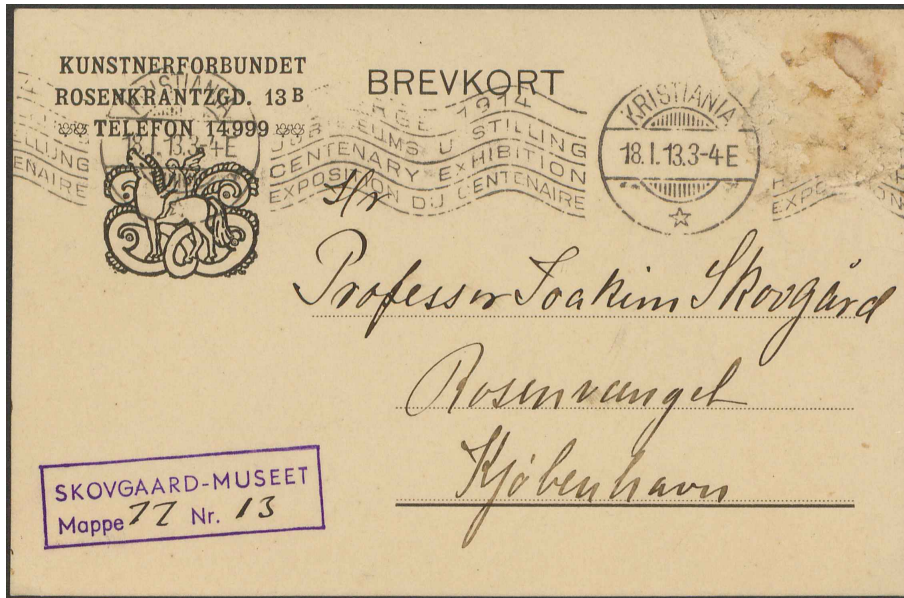 KUNSTNERFORBUNDET
ROSENKRANTZGD. 13 B
TELEFON 14999
BREVKORT
KRISTIANIA
18.I.13.3-4E
1914
JUBILÆUMS UTSTILLING
CENTENARY EXHIBITION
EXPOSITION DU CENTENAIRE
KRISTIANIA
18.I.13.3-4E
Hr
Professor Joakim Skovgård
Rosenvænget
Kjøbenhavn
SKOVGAARD-MUSEET
Mappe 77 Nr. 13